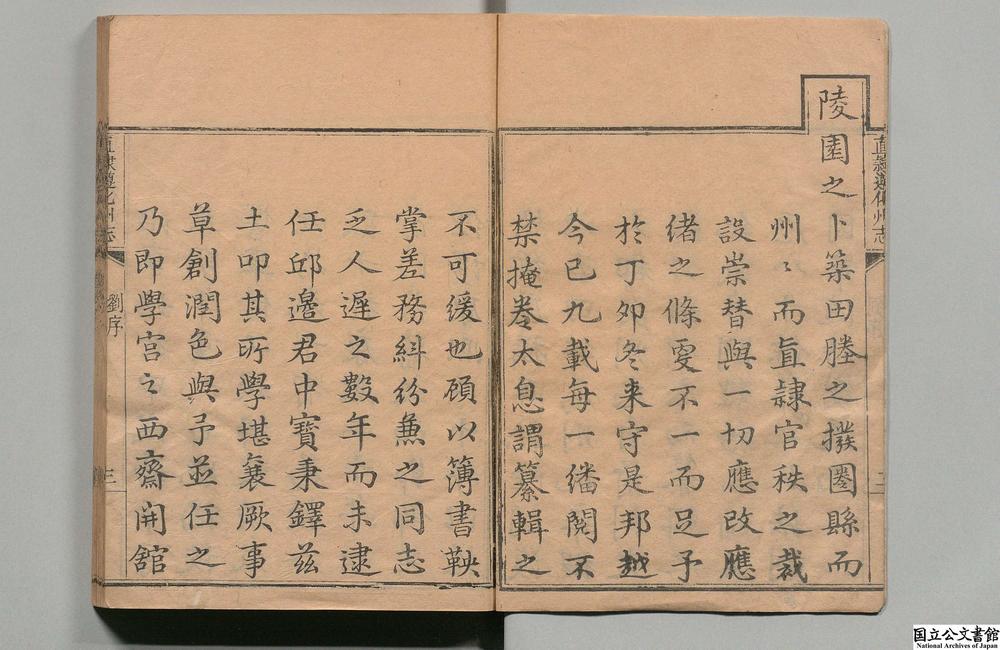 陵園之卜築田賸之撥圈縣而
州〻而直隸官秩之裁
設崇替與一切應改應
緒之條更不一而足予
於丁夘冬来守是邦越
今已九載每一繙閱不
禁掩卷太息謂纂輯之
不可緩也顧以簿書鞅
掌差務糾紛兼之同志
乏人遲之數年而未逮
任邱邉君中寳秉鐸茲
土叩其所學堪襄厥事
草創潤色與予並任之
乃即學宫之西齋開舘
直隸遵化州志
劉序
三
直隸遵化州志
国立公文書館
National Archives of Japan